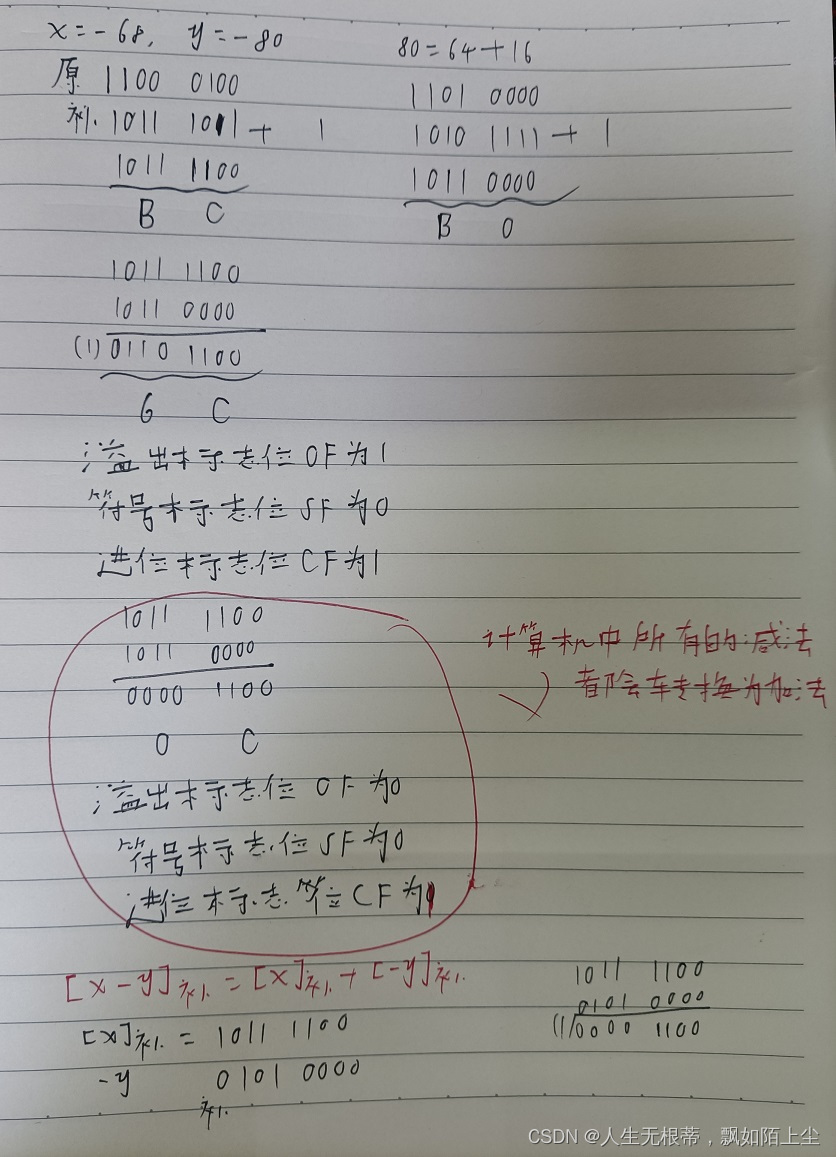 x=-68, y=-80
80=64+16
原 1100 0100
1101 0000
补. 1011 1011 + 1
1010 1111 + 1
1011 1100
1011 0000
B C
B 0
1011 1100
1011 0000
(1)0110 1100
6 C
溢出标志位OF为1
符号标志位SF为0
进位标志位CF为1
1011 1100
1011 0000
0000 1100
0 C
溢出标志位 OF为0
符号标志位SF为0
进位标志符位CF为1
计算机中所有的减法
都会转换为加法
[x-y]补. = [x]补.+ [-y]补.
[x]补. = 1011 1100
-y 0101 0000
补.
1011 1100
0101 0000
(1)0000 1100
CSDN @人生无根蒂，飘如陌上尘